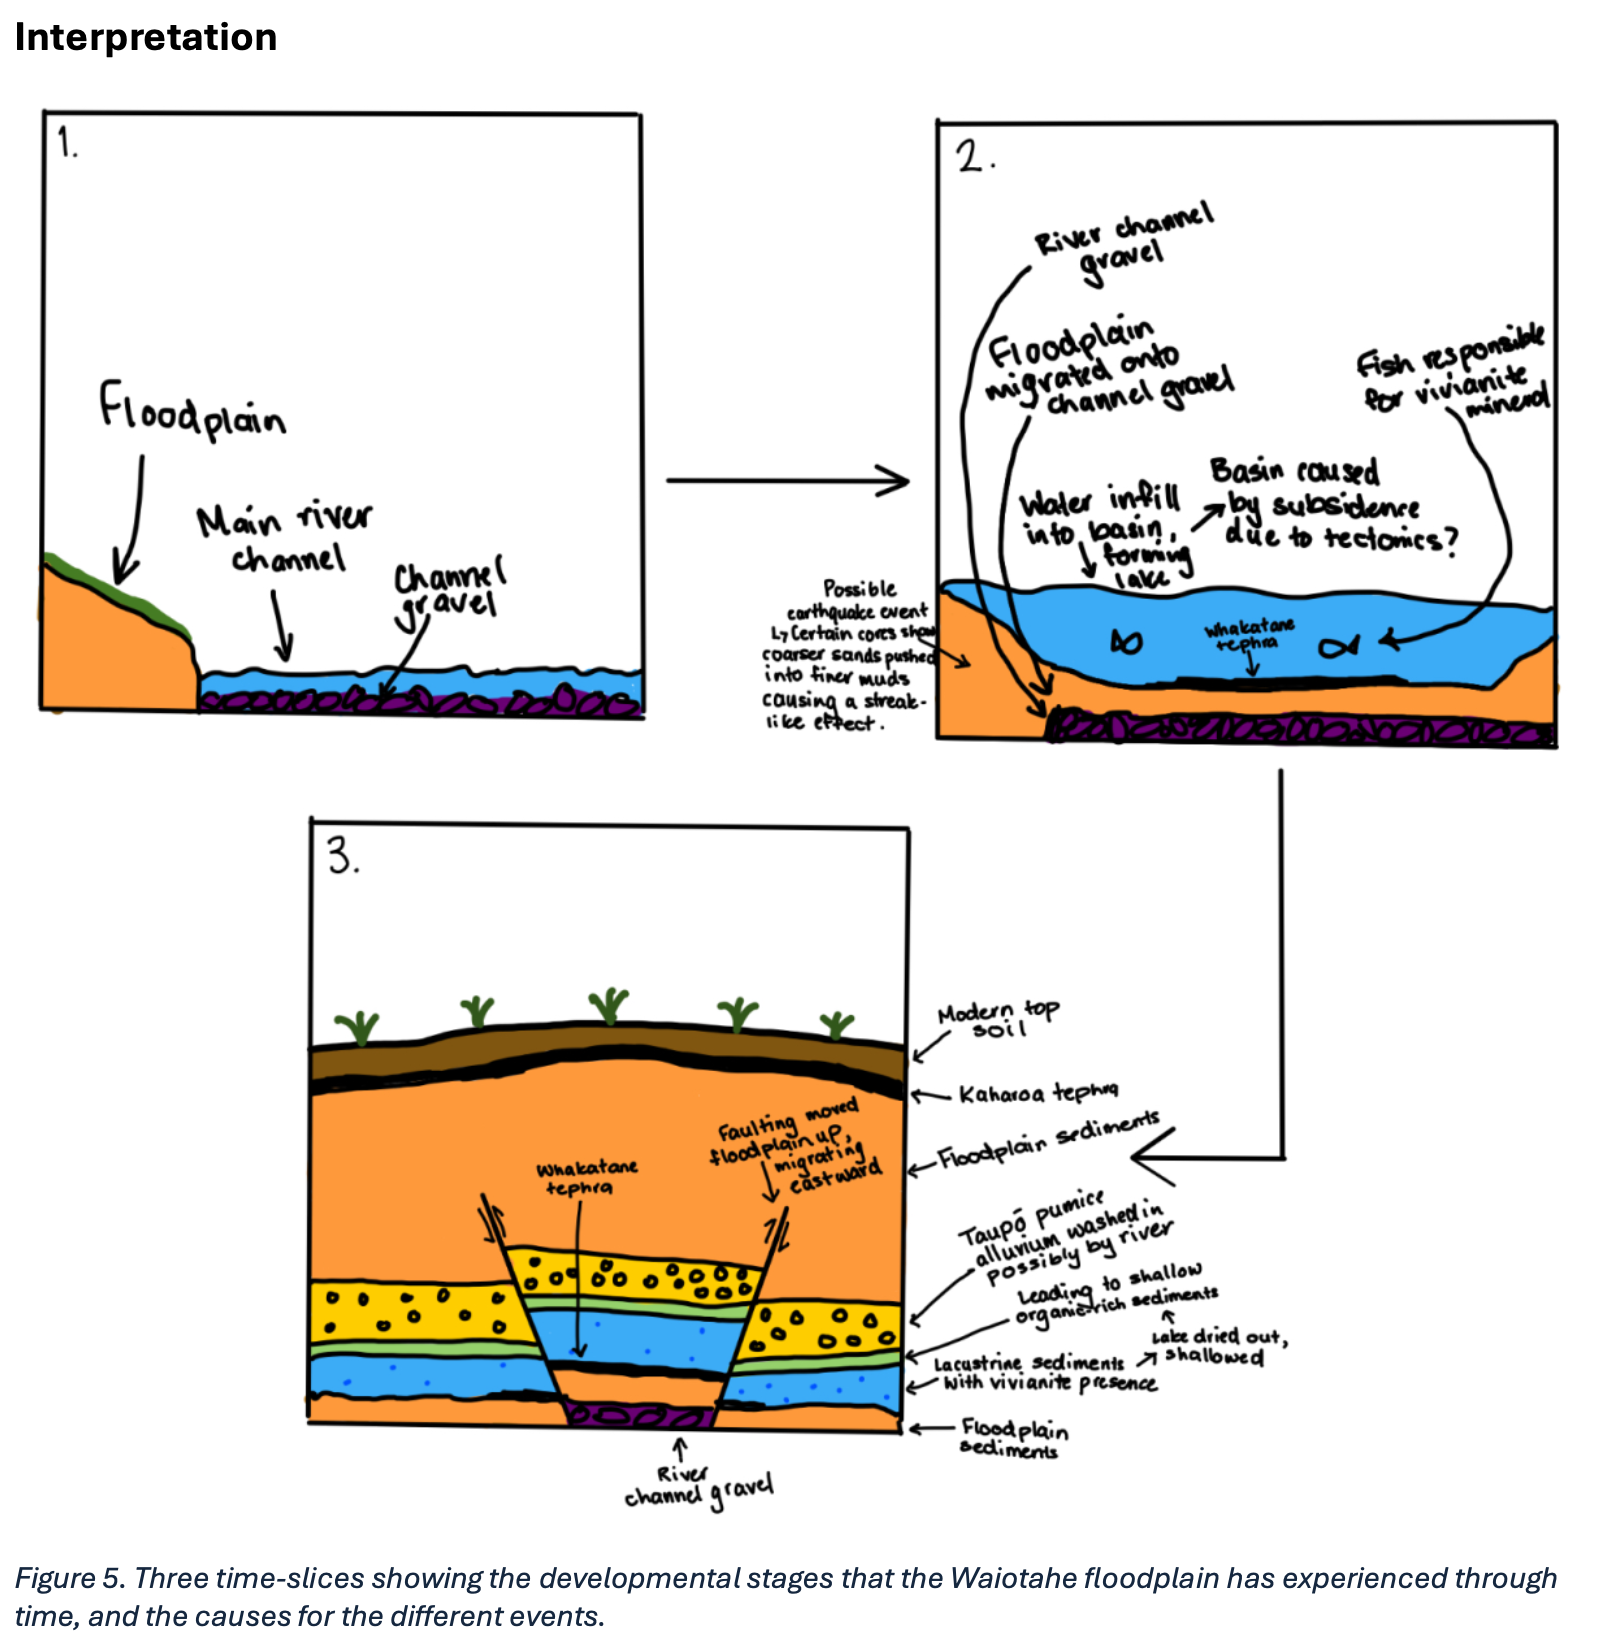 Interpretation
1.
Floodplain
Main river
channel
Channel
gravel
2.
River channel
gravel
Floodplain
migrated onto
channel gravel
Fish responsible
for vivianite
mineral
Water infill
into basin,
forming
lake
Basin caused
by subsidence
due to tectonics?
Whakatane
tephra
Possible
earthquake event
↳ Certain cores show
coarser sands pushed
into finer muds
causing a streak-
like effect.
3.
Modern top
soil
Kaharoa tephra
Floodplain sediments
Faulting moved
floodplain up,
migrating
eastward
Whakatane
tephra
Taupō pumice
alluvium washed in
possibly by river
Leading to shallow
organic-rich sediments
Lake dried out,
shallowed
Lacustrine sediments
with vivianite presence
Floodplain
sediments
River
channel gravel
Figure 5. Three time-slices showing the developmental stages that the Waiotahe floodplain has experienced through
time, and the causes for the different events.